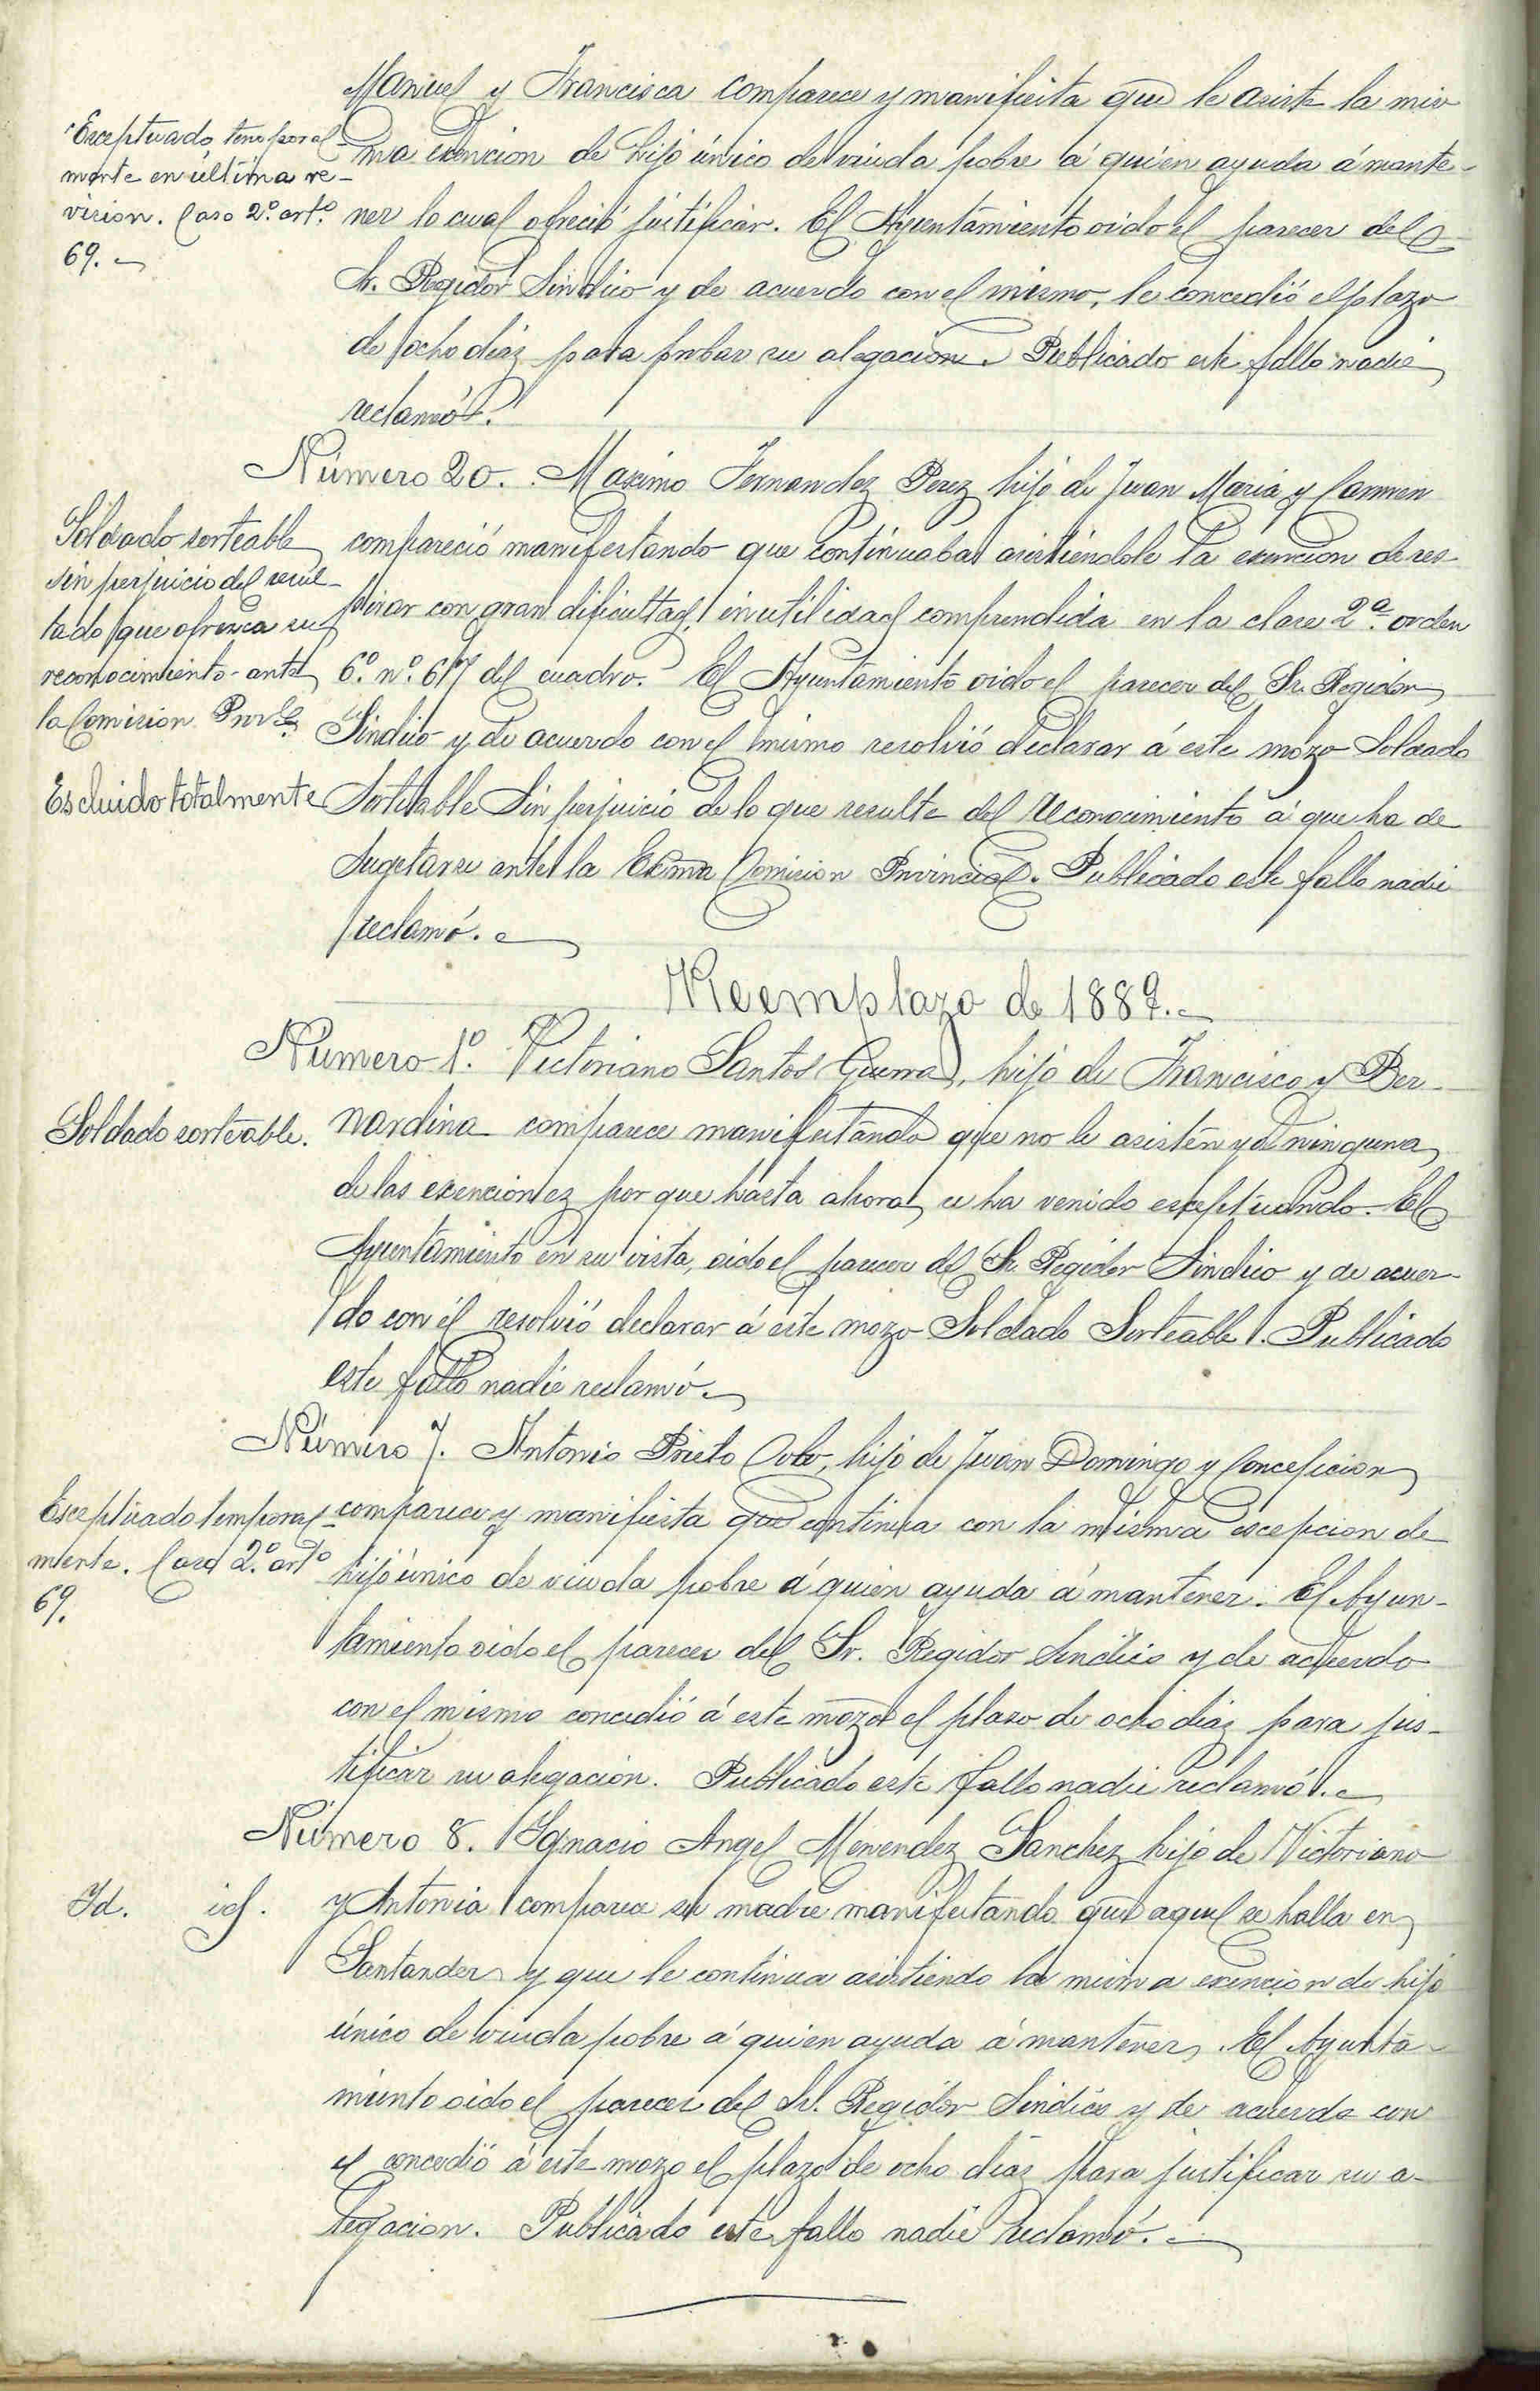 Manuel y Francisca comparece y manifiesta que le asiste la mis
Esceptuado temporal-
mente en última re-
vision. Caso 2º. artº.
69.
ma exencion de hijo único de viuda pobre á quien ayuda á mante-
ner lo cual ofreció justificar. El Ayuntamiento oido el parecer del
Sr. Regidor Sindico y de acuerdo con el mismo, le concedió el plazo
de ocho diaz para probar su alegacion. Publicado este fallo nadie
reclamó.
Número 20. Maximo Fernandez Perez hijo de Juan Maria y Carmen
Soldado sorteable
sin perjuicio del resul-
tado que ofrezca su
reconocimiento ante
la Comision Provl.
Escluido totalmente
compareció manifestando que continuaba asistiéndole la exencion de res-
pirar con gran dificultad, inutilidad comprendida en la clase 2ª. orden
6º. nº. 67 del cuadro. El Ayuntamiento oido el parecer del Sr. Regidor
Sindico y de acuerdo con el mismo resolvió declarar á este mozo Soldado
Sorteable Sin perjuicio de lo que resulte del reconocimiento á que ha de
sugetarse ante la Exma Comision Provincial. Publicado este fallo nadie
reclamó.
Reemplazo de 1889.
Número 1º. Victoriano Santos Guerra, hijo de Francisco y Ber-
Soldado sorteable.
nardina comparece manifestando que no le asisten ya ninguna
de las exenciones por que hasta ahora se ha venido esceptuando. El
Ayuntamiento en su vista, oido el parecer del Sr. Regidor Sindico y de acuer-
do con él resolvió declarar á este mozo Soldado Sorteable. Publicado
este fallo nadie reclamó.
Número 7. Antonio Prieto hijo de Juan Domingo y Concepcion
Esceptuado temporal-
mente. Caso 2º. artº
69.
comparece y manifiesta que continua con la misma escepcion de
hijo único de viuda pobre á quien ayuda á mantener. El Ayun-
tamiento oido el parecer del Sr. Regidor Sindico y de acuerdo
con el mismo concedió á este mozo el plazo de ocho diaz para jus-
tificar su alegacion. Publicado este fallo nadie reclamó.
Número 8. Ignacio Angel Menendez Sanchez hijo de Victoriano
Id. id.
y Antonia comparece su madre manifestando que aquel se halla en
Santander y que le continua asistiendo la misma exencion de hijo
único de viuda pobre á quien ayuda á mantener. El Ayunta-
miento oido el parecer del Sr. Regidor Sindico y de acuerdo con
el concedió á este mozo el plazo de ocho diaz para justificar su a-
legacion. Publicado este fallo nadie reclamó.